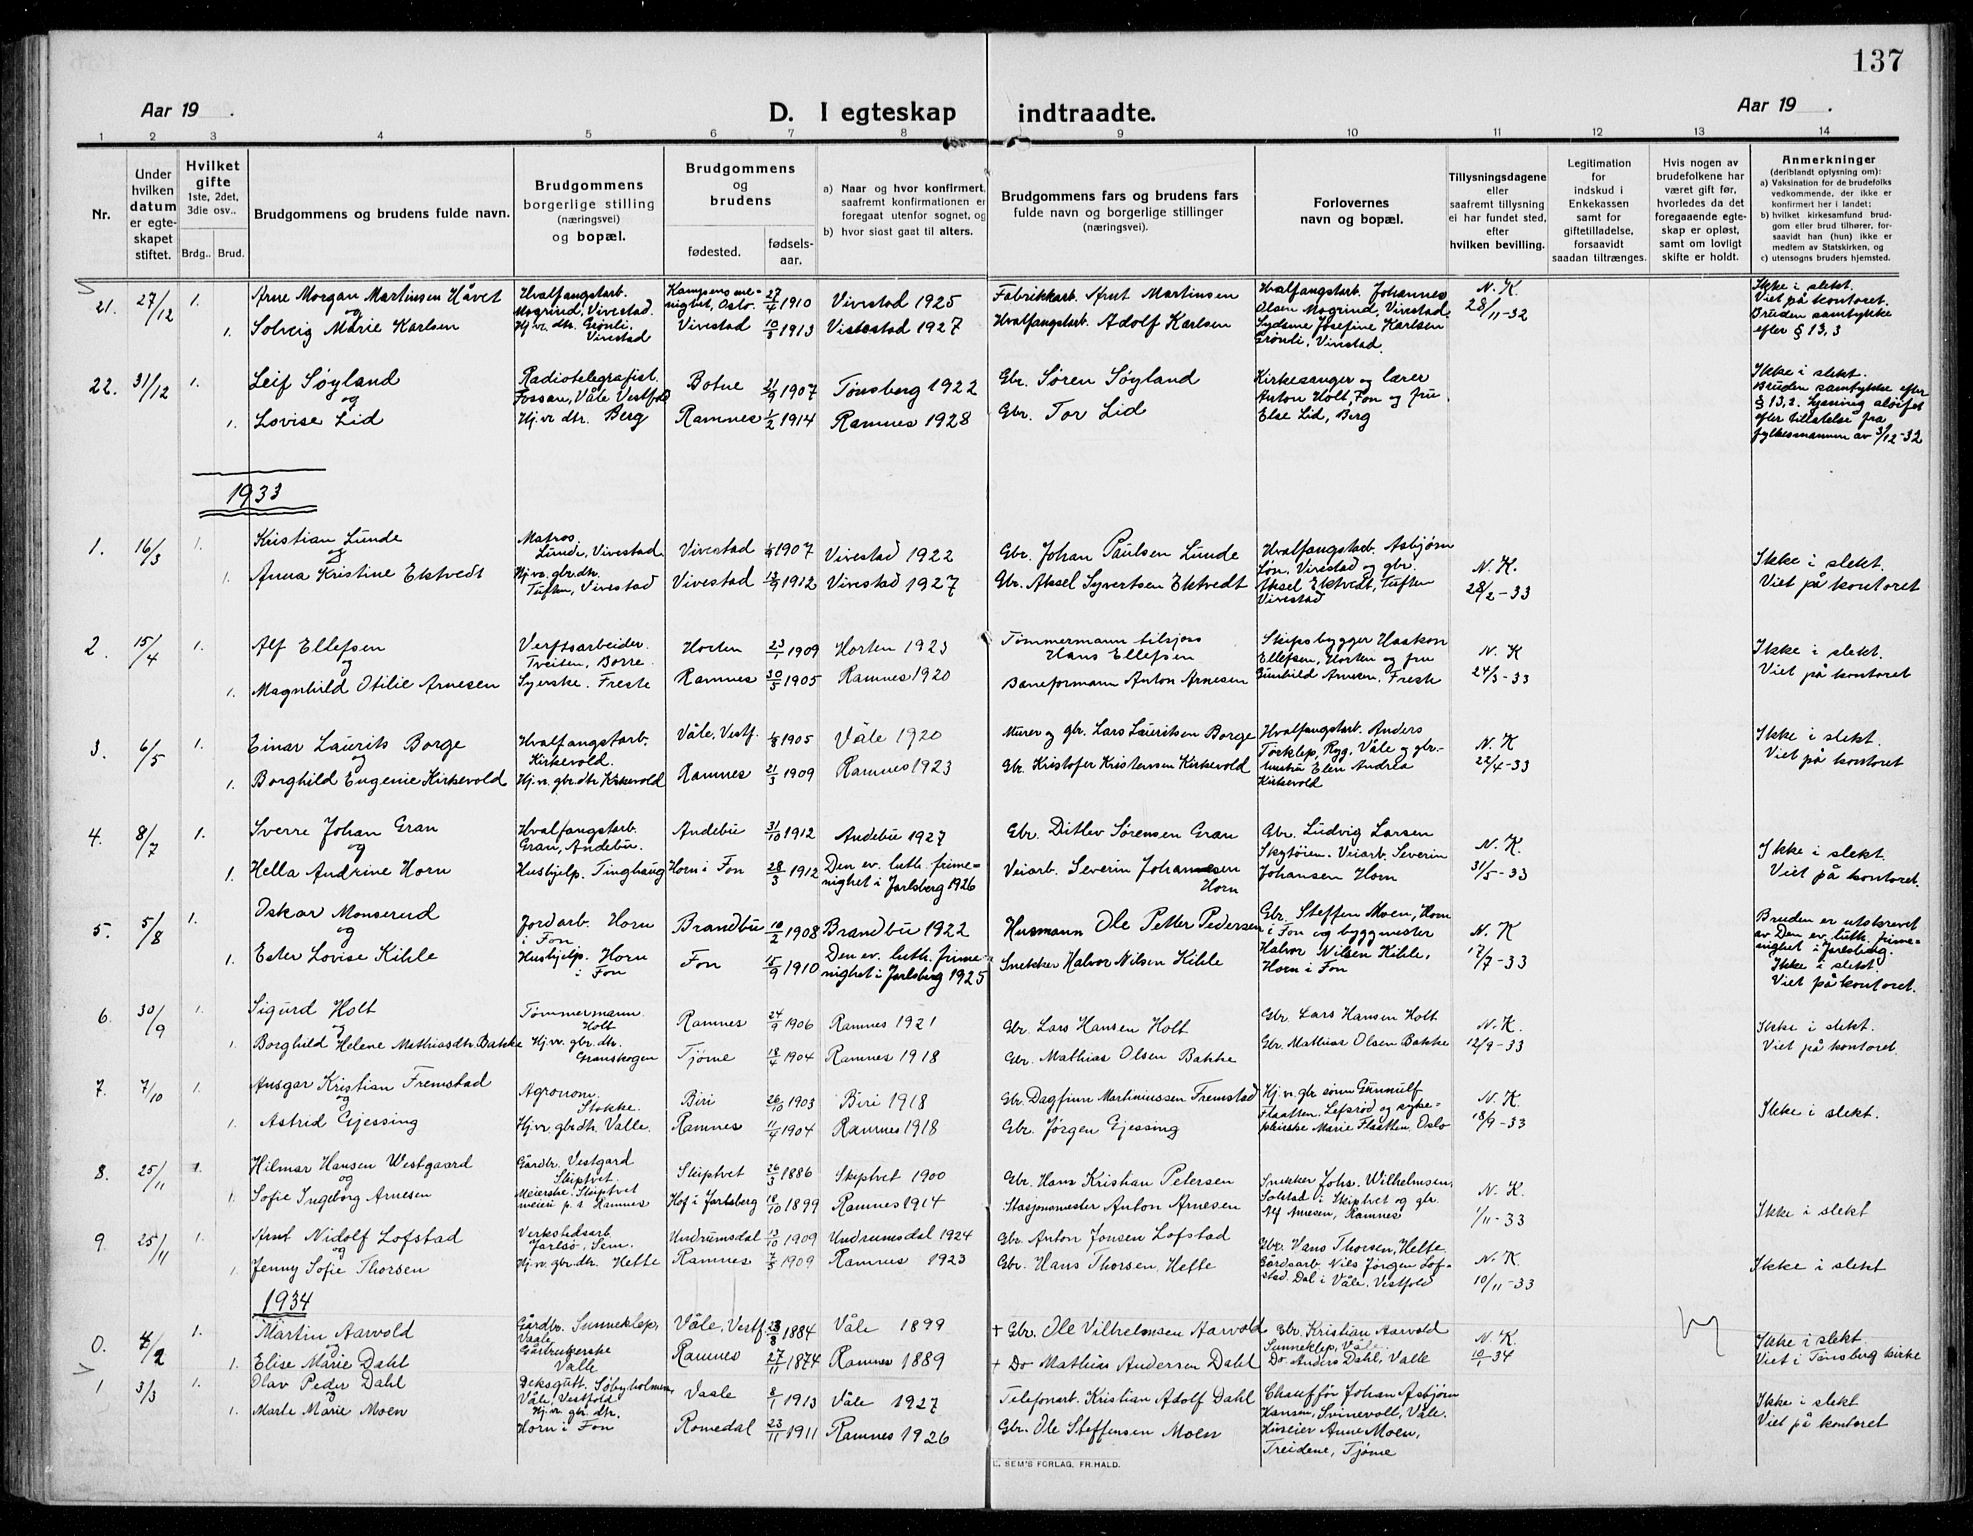 137
Aar 19 .
D. I egteskap indtraadte.
Aar 19 .
1 2 3 4 5 6 7 8 9 10 11 12 13 14
Nr.
Under hvilken datum er egteskapet stiftet.
Hvilket gifte
1ste, 2det, 3die osv..
Brdg.. Brud.
Brudgommens og brudens fulde navn.
Brudgommens borgerlige stilling (næringsvei) og bopæl.
Brudgommens og brudens
fødested.
fødsels-aar.
a) Naar og hvor konfirmert, saafremt konfirmationen er foregaat utenfor sognet, og
b) hvor sidst gaat til alters.
Brudgommens fars og brudens fars
fulde navn og borgerlige stillinger
(næringsvei).
Forlovernes navn og bopæl.
Tillysningsdagene eller saafremt tillysning ei har fundet sted, efter hvilken bevilling.
Legitimation for indskud i Enkekassen samt for giftetilladelse, forsaavidt saadan tiltrænges.
Hvis nogen av brudefolkene har været gift før, hvorledes da det foregaaende egteskap er opløst, samt om lovligt skifte er holdt.
Anmerkninger
(deriblandt oplysning om):
a) Vaksination for de brudefolks vedkommende, der ikke er konfirmert her i landet;
b) hvilket kirkesamfund brudgom eller brud tilhører, forsaavidt han (hun) ikke er medlem av Statskirken, og
c) utensogns bruders hjemsted.
21. 27/12 1. Arne Morgan Martinsen Håvet
og
Hvalfangstarb. Mogrind, Vivestad.
Kampens menighet, Oslo. 27/4 1910 Vivestad 1925
Fabrikkarb. Arnt Martinsen
Hvalfangstarb. Johannes Olsen Mogrind, Vivestad
N. K 28/11-32
Ikke i slekt. Viet på kontoret. Bruden samtykke efter § 13, 3
1. Solveig Marie Karlsen
Hj.vr. dtr. Grønli. Vivestad
Vivestad 10/3 1913 Vivestad 1927
Hvalfangstarb. Adolf Karlsen
Sydame Josefine Karlsen Grønli, Vivestad.
22. 31/12 1. Leif Søyland
og
Radiotelegrafist. Fossan, Våle Vestfold
Botne 21/9 1907 Tønsberg 1922
Gbr. Søren Søyland
Kirkesanger og lærer Anton Holt, Fon og fru Else Lid, Berg
Ikke i slekt. Bruden samtykke efter § 13, 2. Lysning sløifet efter tillatelse fra fylkesmannen av 3/12-32
1. Lovise Lid
Hj.vr dtr. Berg
Ramnes 1/2 1914 Ramnes 1928
Gbr. Tor Lid
1933
1. 16/3 1. Kristian Lunde
og
Matros Lunde, Vivestad
Vivestad 1907 Vivestad 1922
Gbr. Johan Paulsen Lunde
Hvalfangstarb. Asbjørn Søn, Vivestad og gbr. Aksel Ektvedt, Tuften Vivestad
N. K. 28/2-33
Ikke i slekt. Viet på kontoret
1. Anna Kristine Ektvedt
Hj.vr. gbr.dtr. Tuften, Vivestad
Vivestad 1912 Vivestad 1927
Gbr. Aksel Syvertsen Ektvedt
2. 15/4 1. Alf Ellefsen
og
Verftsarbeider. Tveiten, Borre.
Horten 23/1 1909 Horten 1923
Tømmermann tilsjøss Hans Ellefsen
Skipsbygger Haakon Ellefsen, Horten og fru Gunhild Arnesen. Freste
N. K 24/3-33
Ikke i slekt. Viet på kontoret
1. Magnhild Otilie Arnesen
Syerske. Freste
Ramnes 30/5 1905 Ramnes 1920
Baneformann Anton Arnesen
3. 6/5 1. Einar Laurits Borge
og
Hvalfangstarb. Kirkevold.
Våle, Vestf. 1/8 1905 Våle 1920
Murer og gbr. Lars Lauritsen Borge
Hvalfangstarb. Anders Torklep, Ryg, Våle og gbr. Elen Andrea Kirkevold
N. K 22/4-33
Ikke i slekt. Viet på kontoret
1. Borghild Eugenie Kirkevold
Hj.vr. gbr.dtr Kirkevold
Ramnes 21/3 1909 Ramnes 1923
Gbr. Kristofer Kristensen Kirkevold
4. 8/7 1. Sverre Johan Gran
og
Hvalfangstarb. Gran, Andebu.
Andebu 31/10 1912 Andebu 1927
Gbr. Ditlev Sørensen Gran
Gbr. Ludvig Larsen Skytøien. Veiarb. Severin Johansen Horn
N. K. 31/5-33
Ikke i slekt. Viet på kontoret.
1. Hella Andrine Horn
Hushjelp. Tinghaug
Horn i Fon 28/3 1912 Den ev. luth. frimenighet i Jarlsberg 1926
Veiarb. Severin Johannesen Horn
5. 5/8 1. Oskar Monserud
og
Jordarb. Horn i Fon
Brandbu 10/2 1908 Brandbu 1922
Husmann Ole Petter Pedersen
Gbr. Steffen Moen, Horn i Fon og byggmester Halvor Nilsen Kihle, Horn i Fon
N. K 17/7-33
Bruden er utskrevet av Den ev. luth. frimenighet i Jarlsberg. Ikke i slekt. Viet på kontoret.
1. Ester Lovise Kihle
Hushjelp. Horn i Fon
Fon 15/9 1910 Den ev. luth. frimenighet i Jarlsberg 1925
Snekker Halvor Nilsen Kihle
6. 30/9 1. Sigurd Holt
og
Tømmermann. Holt
Ramnes 24/9 1906 Ramnes 1921
Gbr. Lars Hansen Holt
Gbr. Lars Hansen Holt
N. K. 12/9-33
Ikke i slekt. Viet på kontoret.
1. Borghild Helene Mathiasdtr. Bakke
Hj.vr. gbr. dtr. Granskogen
Tjøme 18/4 1904 Ramnes 1918
Gbr. Mathias Olsen Bakke
Gbr. Mathias Olsen Bakke
7. 7/10 1. Ansgar Kristian Fremstad
og
Agronom. Stokke.
Biri 26/10 1903 Biri 1918
Gbr. Dagfinn Martiniussen Fremstad
Hj.vr. gbr. sønn Gunnulf Flaatten. Lefsrød og sykepleierske Marie Flaatten, Oslo
N. K. 18/9-33
Ikke i slekt.
1. Astrid Gjessing
Hj.vr gbr.dtr. Valle.
Ramnes 11/4 1904 Ramnes 1918
Gbr. Jørgen Gjessing
8. 25/11 1. Hilmar Hansen Westgaard
og
Gårdbr. Vestgard Skiptvet.
Skiptvet 26/3 1886 Skiptvet 1900
Gbr. Hans Kristian Petersen
Snekker Johs. Wilhelmsen, Solstad i Skiptvet og gbr. Alf Arnesen, Ramnes
N. K. 1/11-33
Ikke i slekt
1. Sofie Ingeborg Arnesen
Meierske. Skiptvet meieri p. t. Ramnes
Hof i Jarlsberg 18/10 1899 Ramnes 1914
Stasjonsmester Anton Arnesen
9. 25/11 1. Arnt Nidolf Lofstad
og
Verkstedsarb. Jarlsø, Sem.
Undrumsdal 13/10 1909 Undrumsdal 1924
Gbr. Anton Jonsen Lofstad
Gbr. Hans Thorsen, Helte. Gårdsarb. Nils Jörgen Lofstad. Dal i Våle, Vestfold
N. K 10/11-33
Ikke i slekt
1. Jenny Sofie Thorsen
Hj.vr. gbr.dtr. Hette
Ramnes 7/5 1909 Ramnes 1923
Gbr. Hans Thorsen, Hette
1934
0. 4/2 1. Martin Aarvold
og
Gårdbr. Sunneklep, Vaale
Våle, Vestf. 23/8 1884 Våle 1899
+ Gbr. Ole Vilhelmsen Aarvold
Gbr. Kristian Aarvold Sunneklep, Våle.
N. K. 10/1 34
Ikke i slekt. Viet i Tønsberg kirke
1. Elise Marie Dahl
Gårdbrukerske Valle
Ramnes 27/11 1874 Ramnes 1889
+ Do Mathias Andersen Dahl
Do Anders Dahl, Valle
1 3/3 1. Olav Peder Dahl
og
Deksgutt. Søbyholmen, Våle, Vestfold
Vaale 8/1 1913 Våle 1927
Telefonarb. Kristian Adolf Dahl
Chauffør Johan Asbjørn Hansen, Svinevoll, Våle. Huseier Anne Moen, Treidene, Tjøme
Ikke i slekt Viet på kontoret
1. Marle Marie Moen
Hj.vr. gbr. dtr. Horn i Fon
Romedal 23/11 1911 Ramnes 1926
Gbr. Ole Steffensen Moen
E. SEM'S FORLAG, FR.HALD.